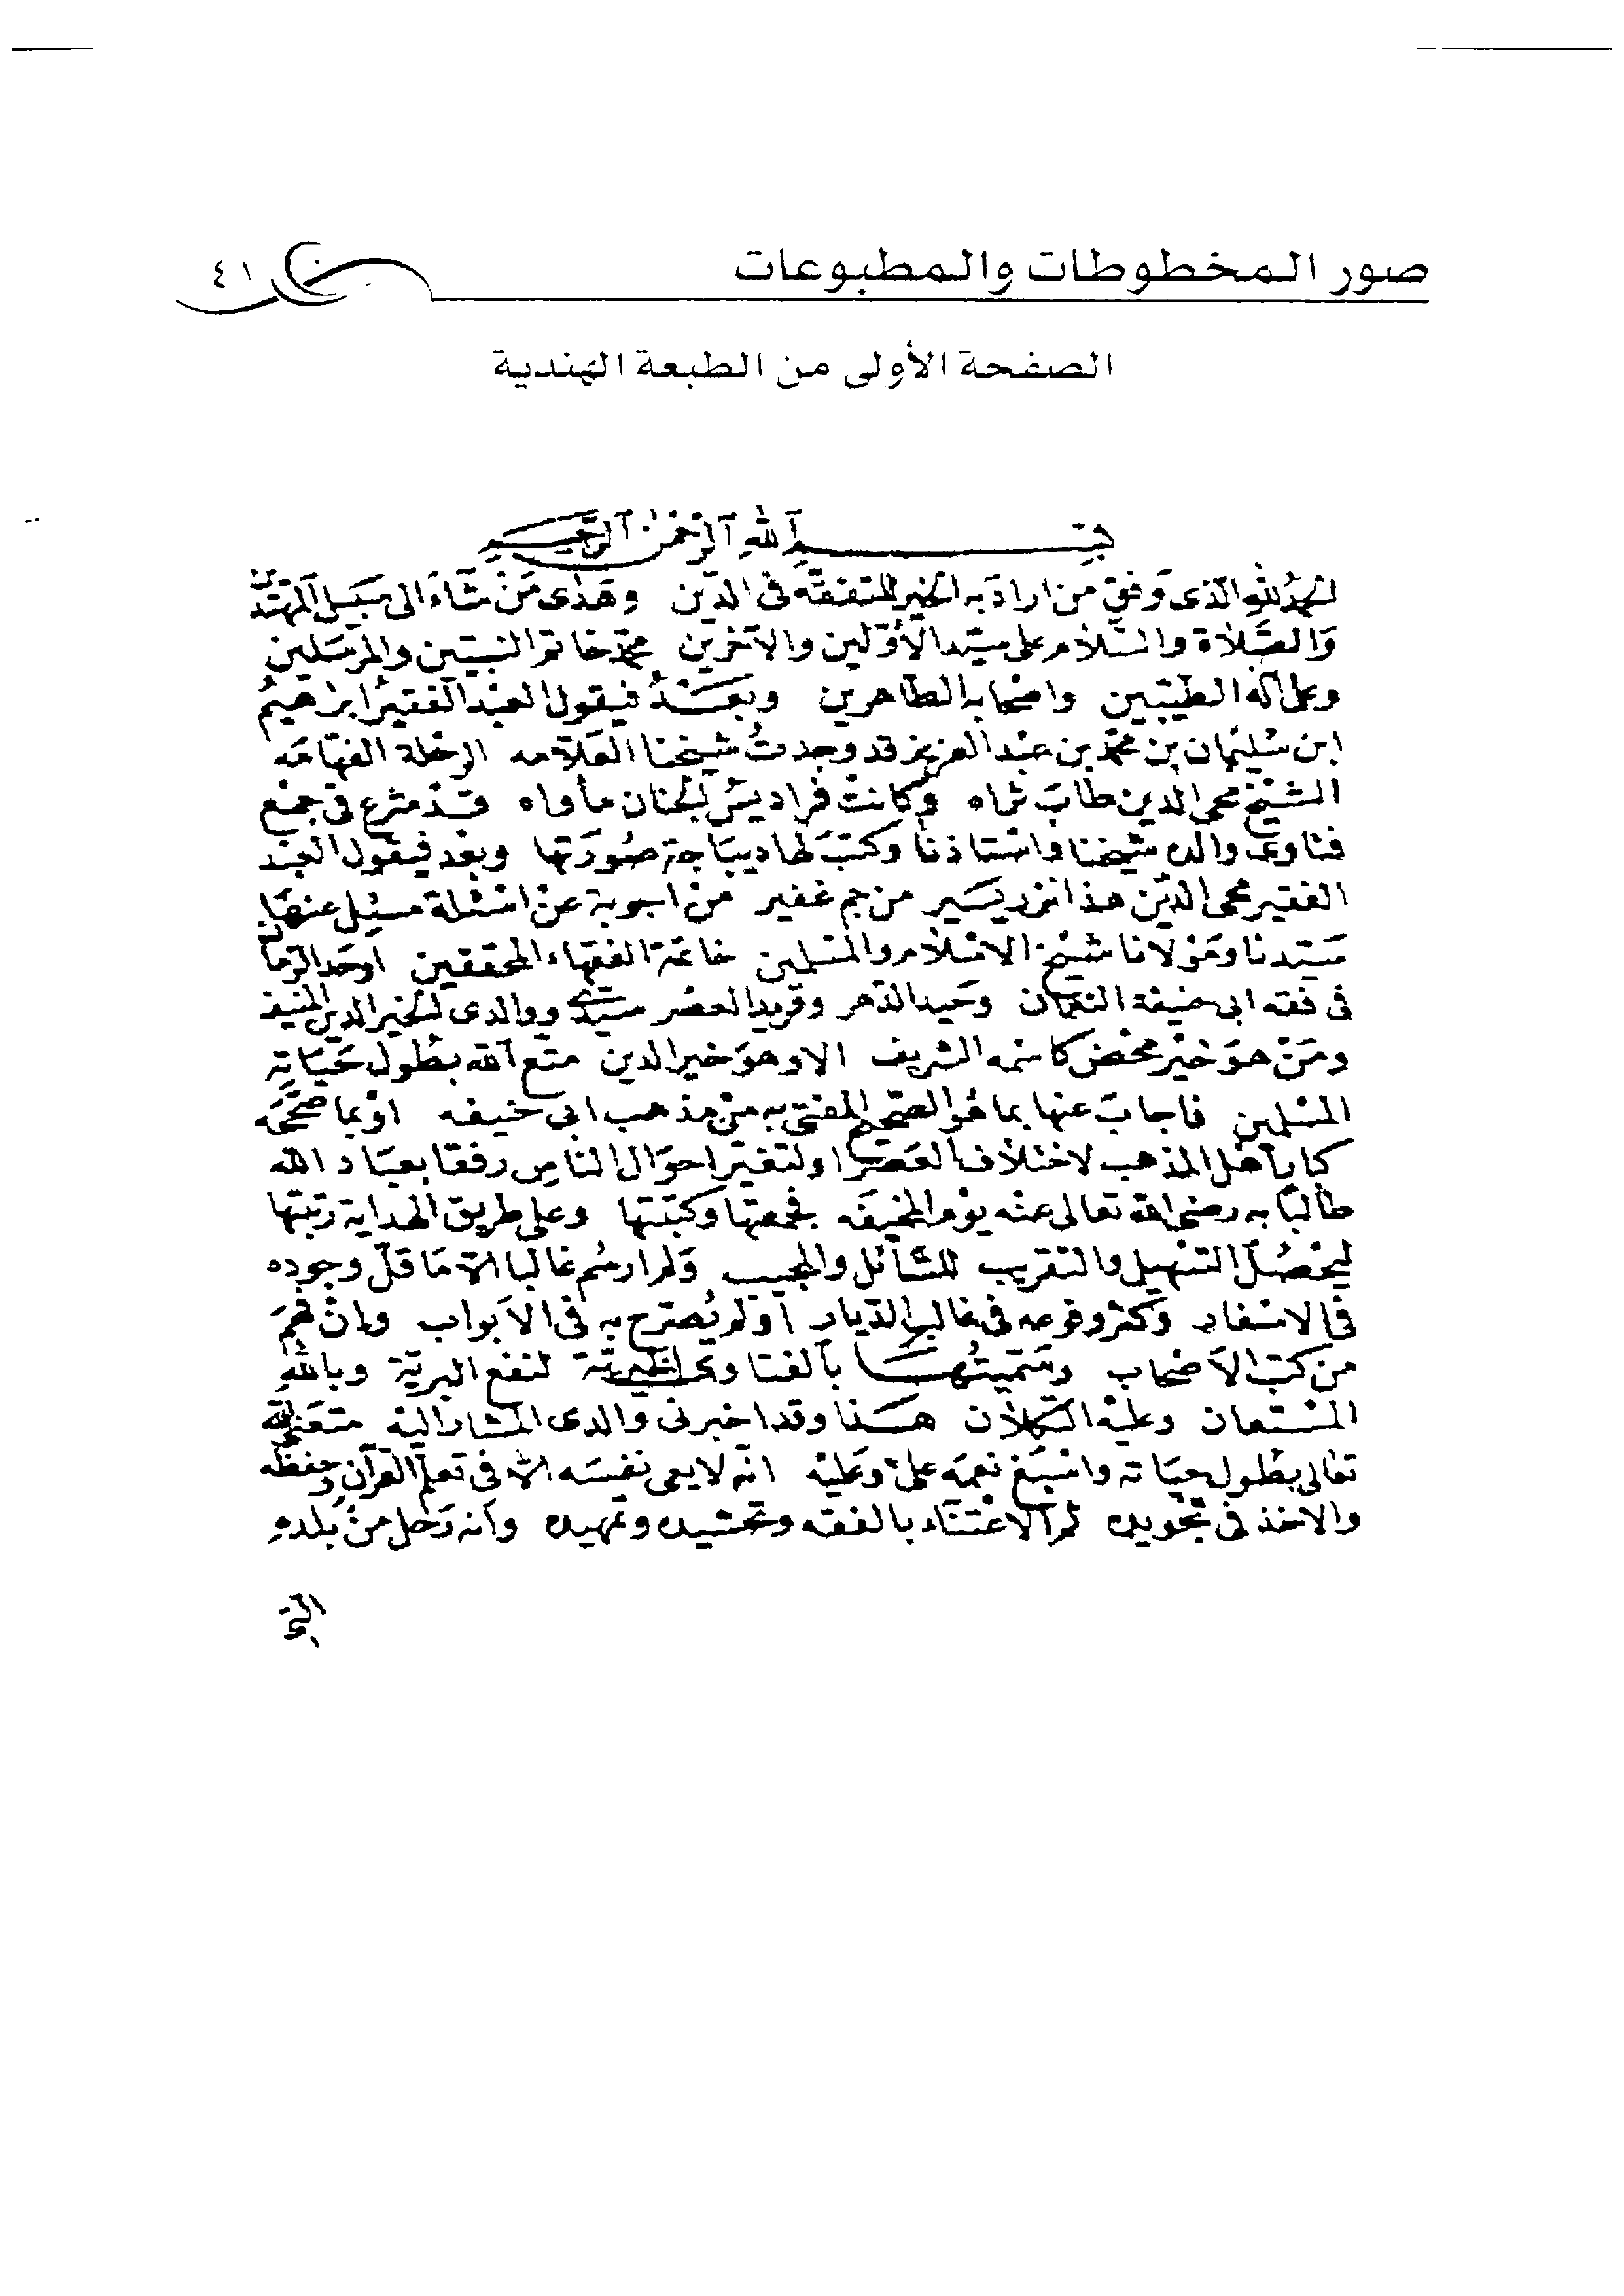 صور المخطوطات والمطبوعات
٤١
الصفحة الأولى من الطبعة الهندية
بسم الله الرحمن الرحيم
الحمد لله الذى وفق من اراد به الخير للتفقه فى الدين وهدى من شاء الى سبيل المهتدين
والصلاة والسلام على سيد الأولين والآخرين محمد خاتم النبيين والمرسلين
وعلى آله الطيبين واصحابه الطاهرين وبعد فيقول العبد الفقير ابراهيم
ابن سليمان بن محمد بن عبد العزيز قد وجدت شيخنا العلامه الرحلة الفهامه
الشيخ محى الدين طاب ثراه وكانت فراديس الجنان مأواه قد شرع فى جمع
فتاوى والده شيخنا واستاذنا وكتب لها ديباجة صورتها وبعد فيقول العبد
الفقير محى الدين هذا نزر يسير من جم غفير من اجوبة عن اسئلة سئل عنها
سيدنا ومولانا شيخ الاسلام والمسلمين خاتمة الفقهاء المحققين اوحد الزمان
فى فقه ابى حنيفة النعمان وحيد الدهر وفريد العصر سيدى ووالدى الخير الدين المنيف
ومن هو خير محض كاسمه الشريف الا وهو خير الدين متع الله بطول حياته
المسلمين فاجاب عنها بما هو الصحيح المفتى به من مذهب ابى حنيفه او بما صححه
كبار أهل المذهب لاختلاف العصر او لتغير احوال الناس رفقا بعباد الله
طالبا به رضى الله تعالى عنه يوم الخيفه فجمعتها وكتبتها وعلى طريق الهداية رتبتها
ليحصل التسهيل والتقريب للسائل والمجيب ولم ارسم غالبا الا ما قل وجوده
فى الاسفار وكثر وقوعه فى غالب الديار او لم يصرح به فى الابواب وان فهم
من كتب الاصحاب وسميتها بالفتاوى الخيرية لنفع البرية وبالله
المستعان وعليه التكلان هذا وقد اخبرنى والدى المشار اليه متعنى الله
تعالى بطول حياته واسبغ نعمه على وعليه انه لا يعى نفسه الا فى تعلم القرآن وحفظه
والاخذ فى تجويده ثم الاعتناء بالفقه وتحشيده وتمهيده وانه رحل من بلده